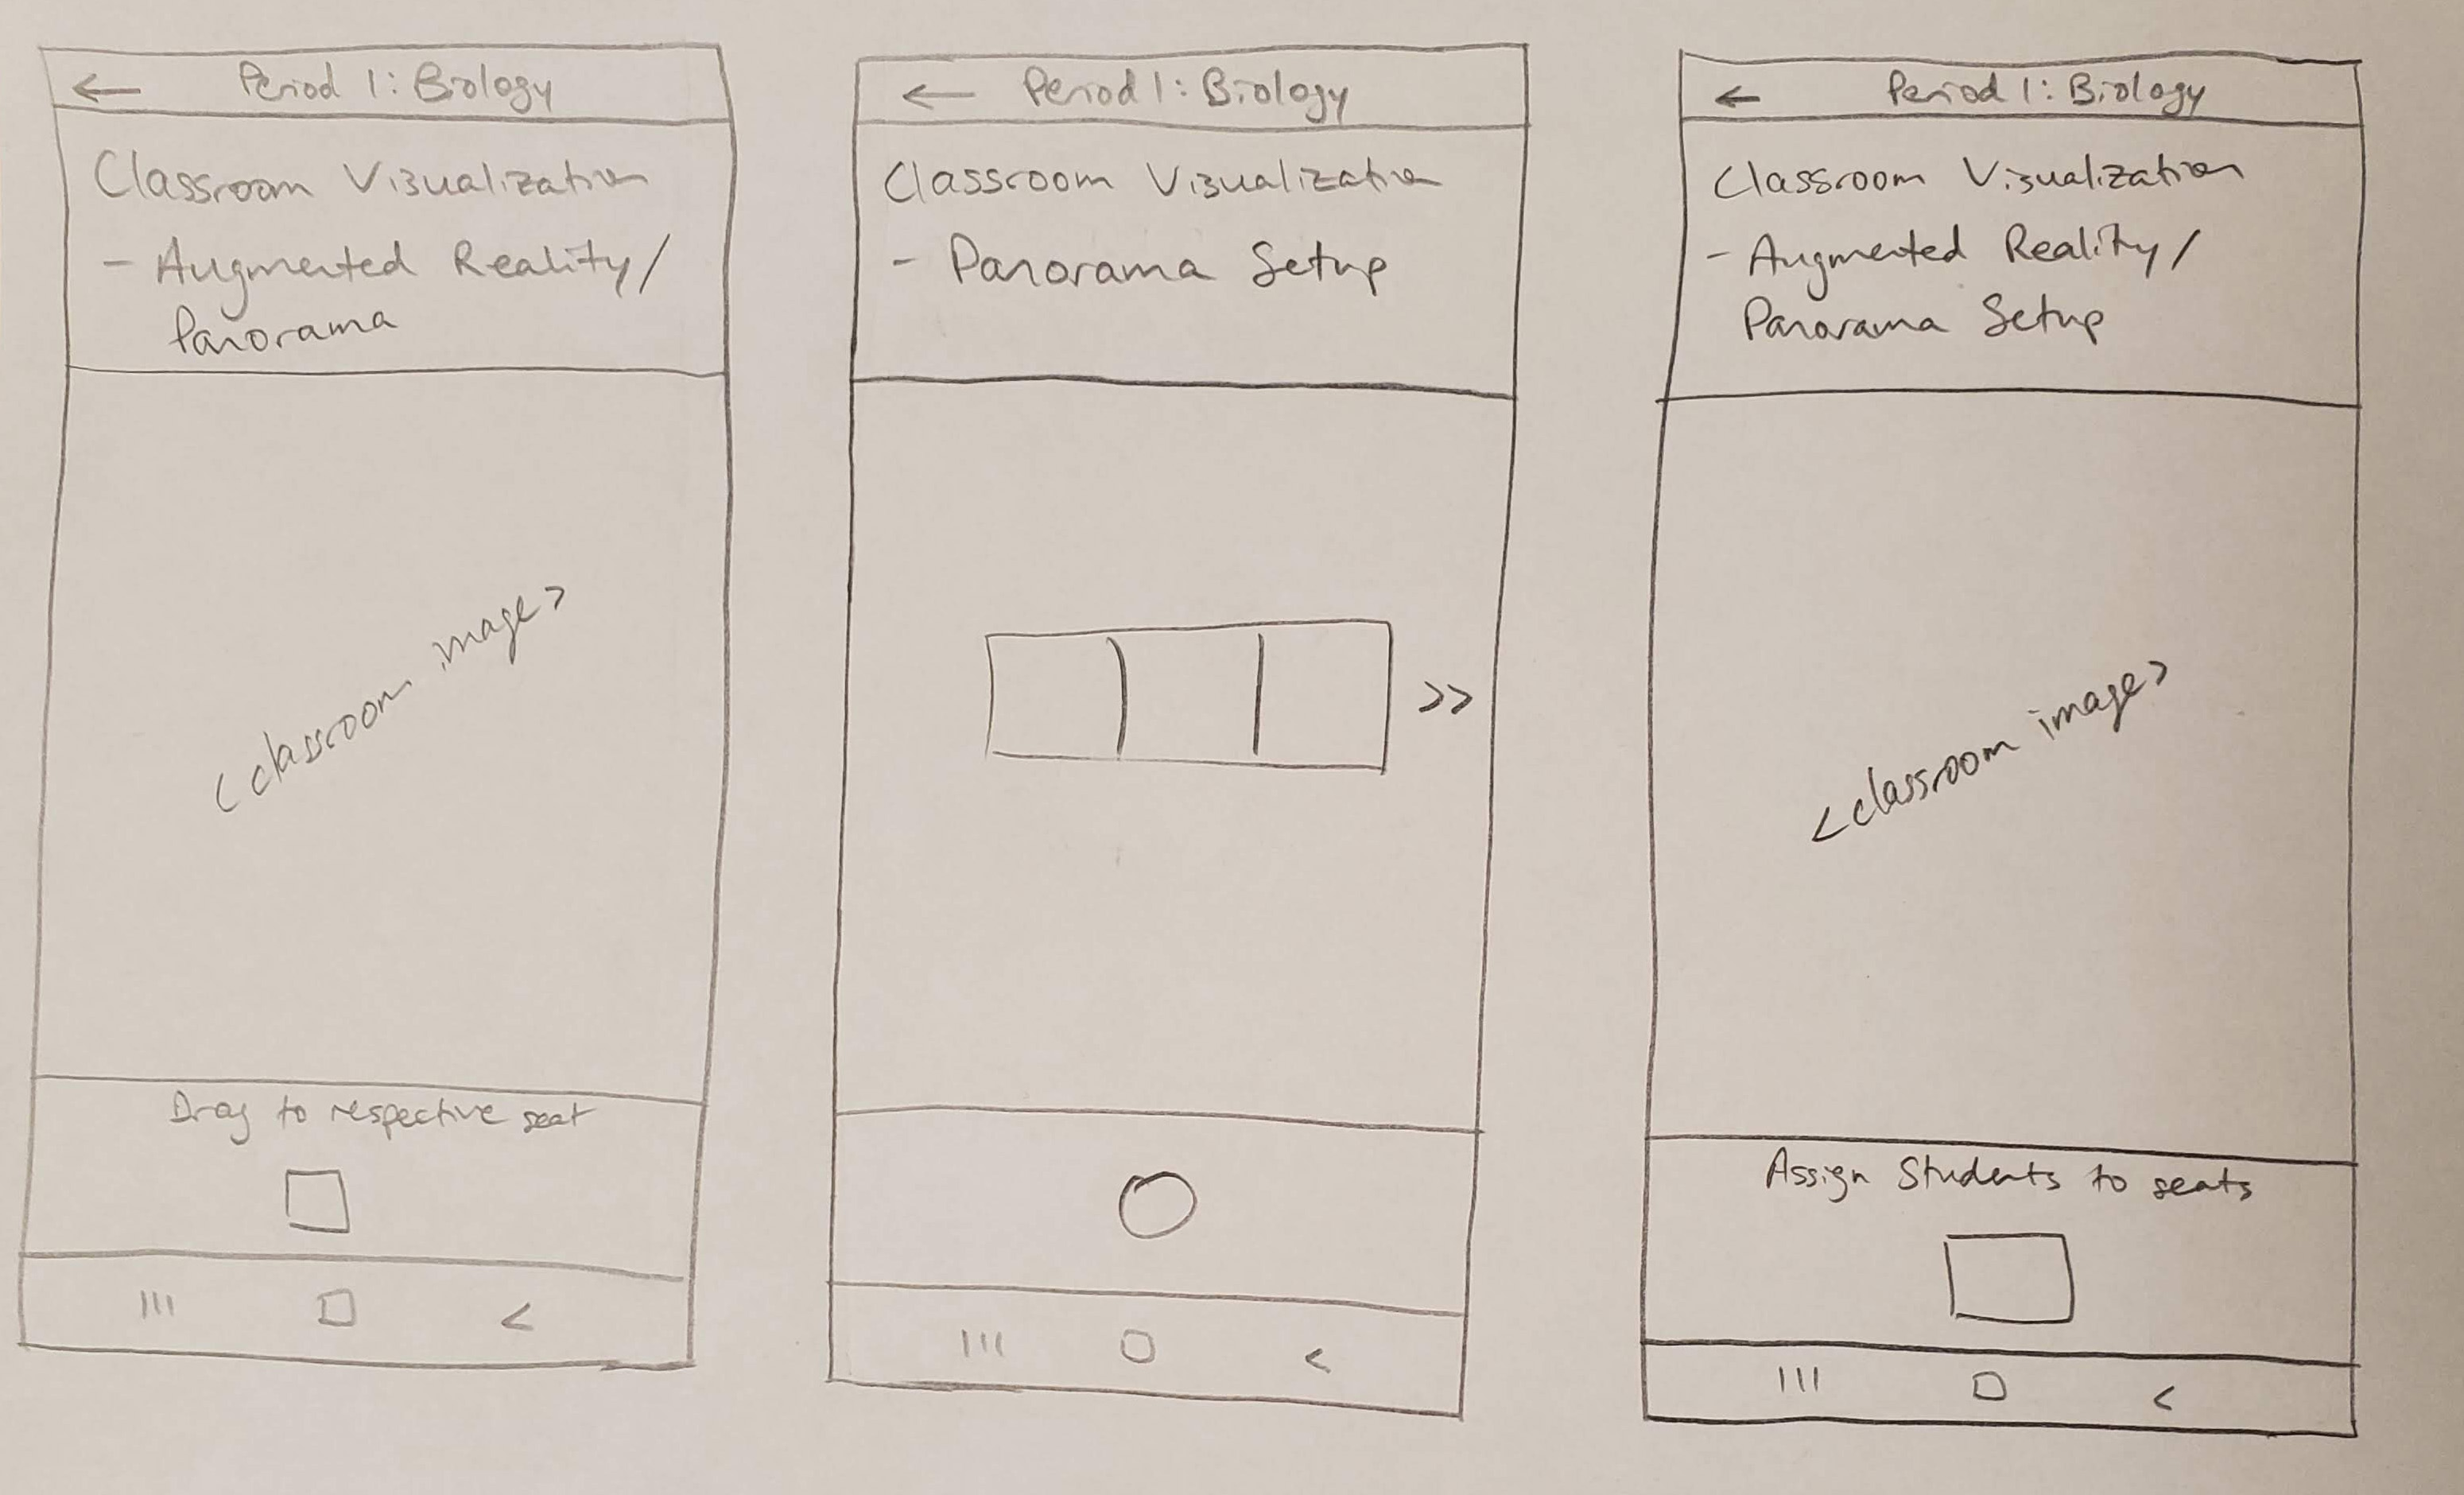 ← Period 1: Biology
Classroom Visualization
- Augmented Reality/
Panorama
<classroom image>
Drag to respective seat
||| □ <
← Period 1: Biology
Classroom Visualization
- Panorama Setup
>>
||| □ <
← Period 1: Biology
Classroom Visualization
- Augmented Reality/
Panorama Setup
<classroom image>
Assign Students to seats
||| □ <